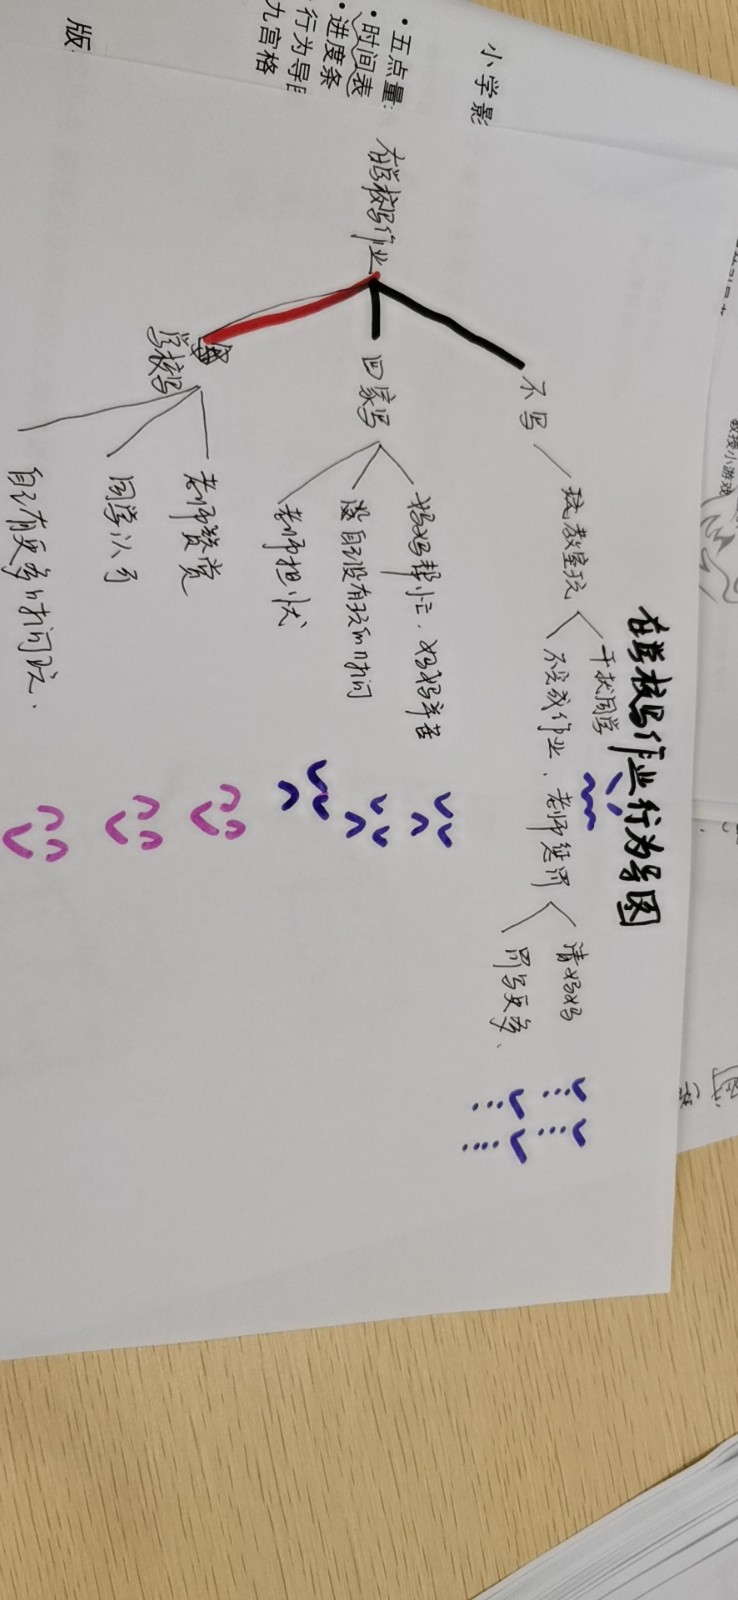 在学校写作业行为导图
在学校写作业
不写
教室玩
干扰同学
不完成作业、老师惩罚
请妈妈
罚写更多、
回家写
妈妈帮忙、妈妈辛苦
自己没有玩的时间
老师担忧
学校写
老师赞赏
同学认可
自己有更多时间玩.
小学影
• 五点量
• 时间表
• 进度条
行为导
九宫格
版
教授小游戏